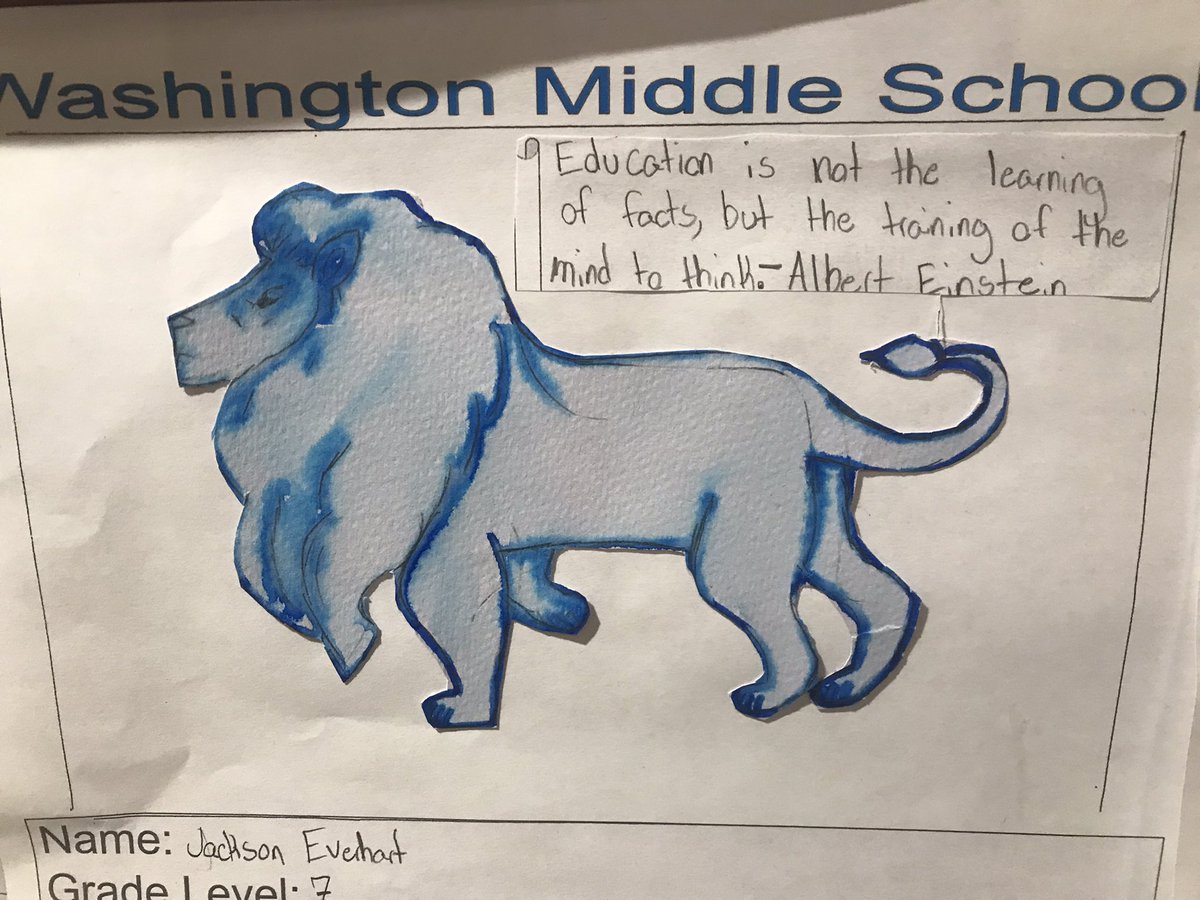 Washington Middle School
Education is not the learning
of facts, but the training of the
mind to think.-Albert Einstein
Name: Jackson Everhart
Grade Level: 7